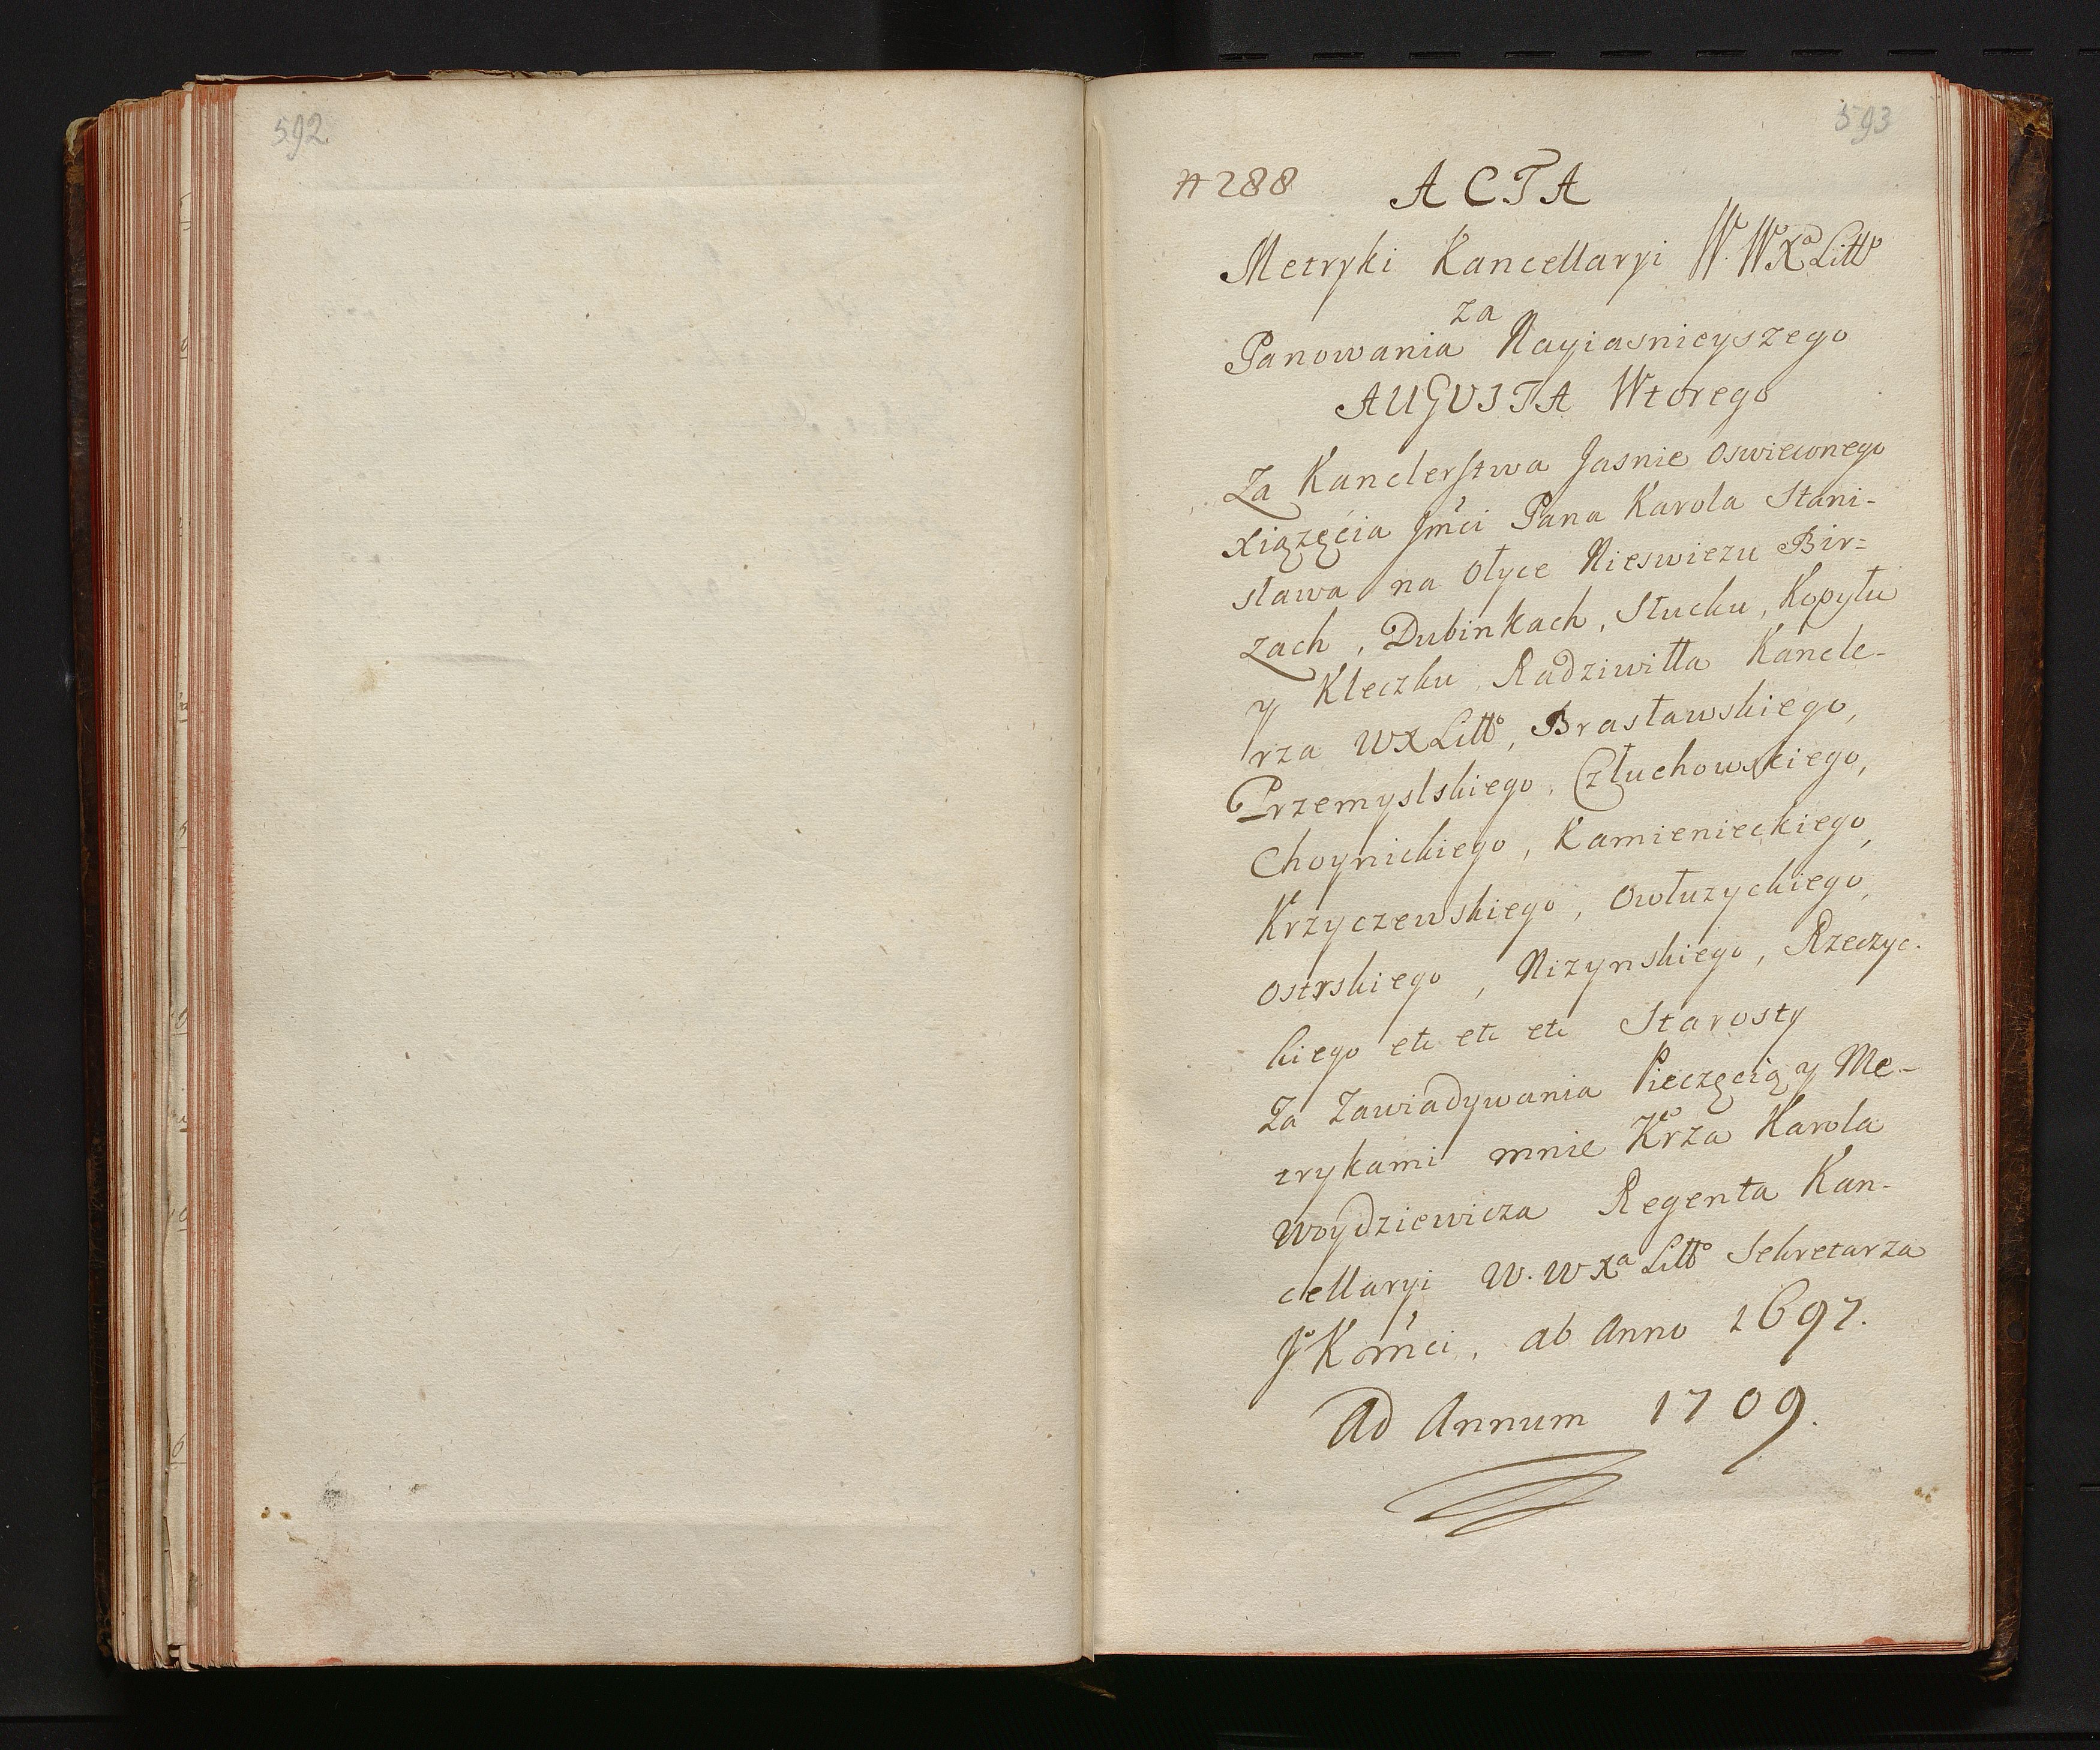 592
593
# 288 ACTA
Metryki Kancellaryi W. WXa Litto
za
Panowania Nayiasnieyszego
AUGUSTA Wtorego
Za Kanclerstwa Jasnie Oswieconego
Xiążęćia Jmći Pana Karola Stani-
sława na Ołyce Nieswiezu Bir=
zach, Dubinkach, Słucku, Kopylu
y Kleczku Radziwiłła Kancle-
rza WXLitto, Brasławskiego,
Przemyslskiego, Człuchowskiego,
Choynickiego, Kamienieckiego,
Krzyczewskiego, Owłuzyckiego,
Ostrskiego, Nizynskiego, Rzeczyc-
kiego etc etc etc Starosty
Za Zawiadywania Pieczęcią y Me-
trykami mnie Krza Karola
Woydziewicza Regenta Kan-
cellaryi W. WXa Litto Sekretarza
JoKomći, ab Anno 1697.
Ad Annum 1709.